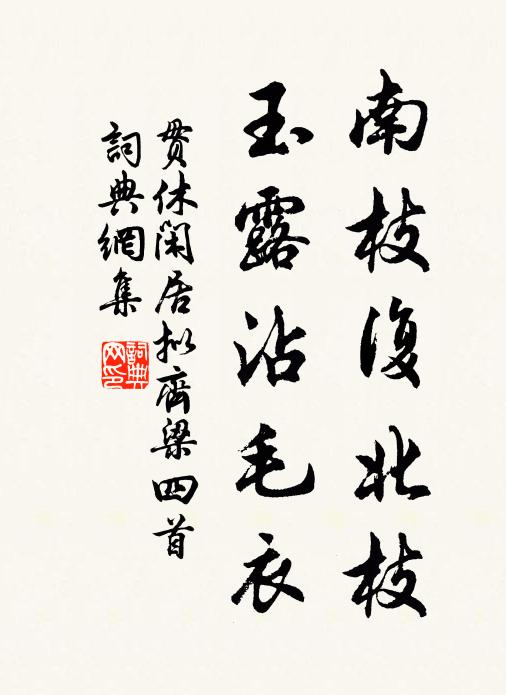 南枝復北枝
玉露沾毛衣
貫休閑居拟齊梁四首
詞典網集
詞典网印